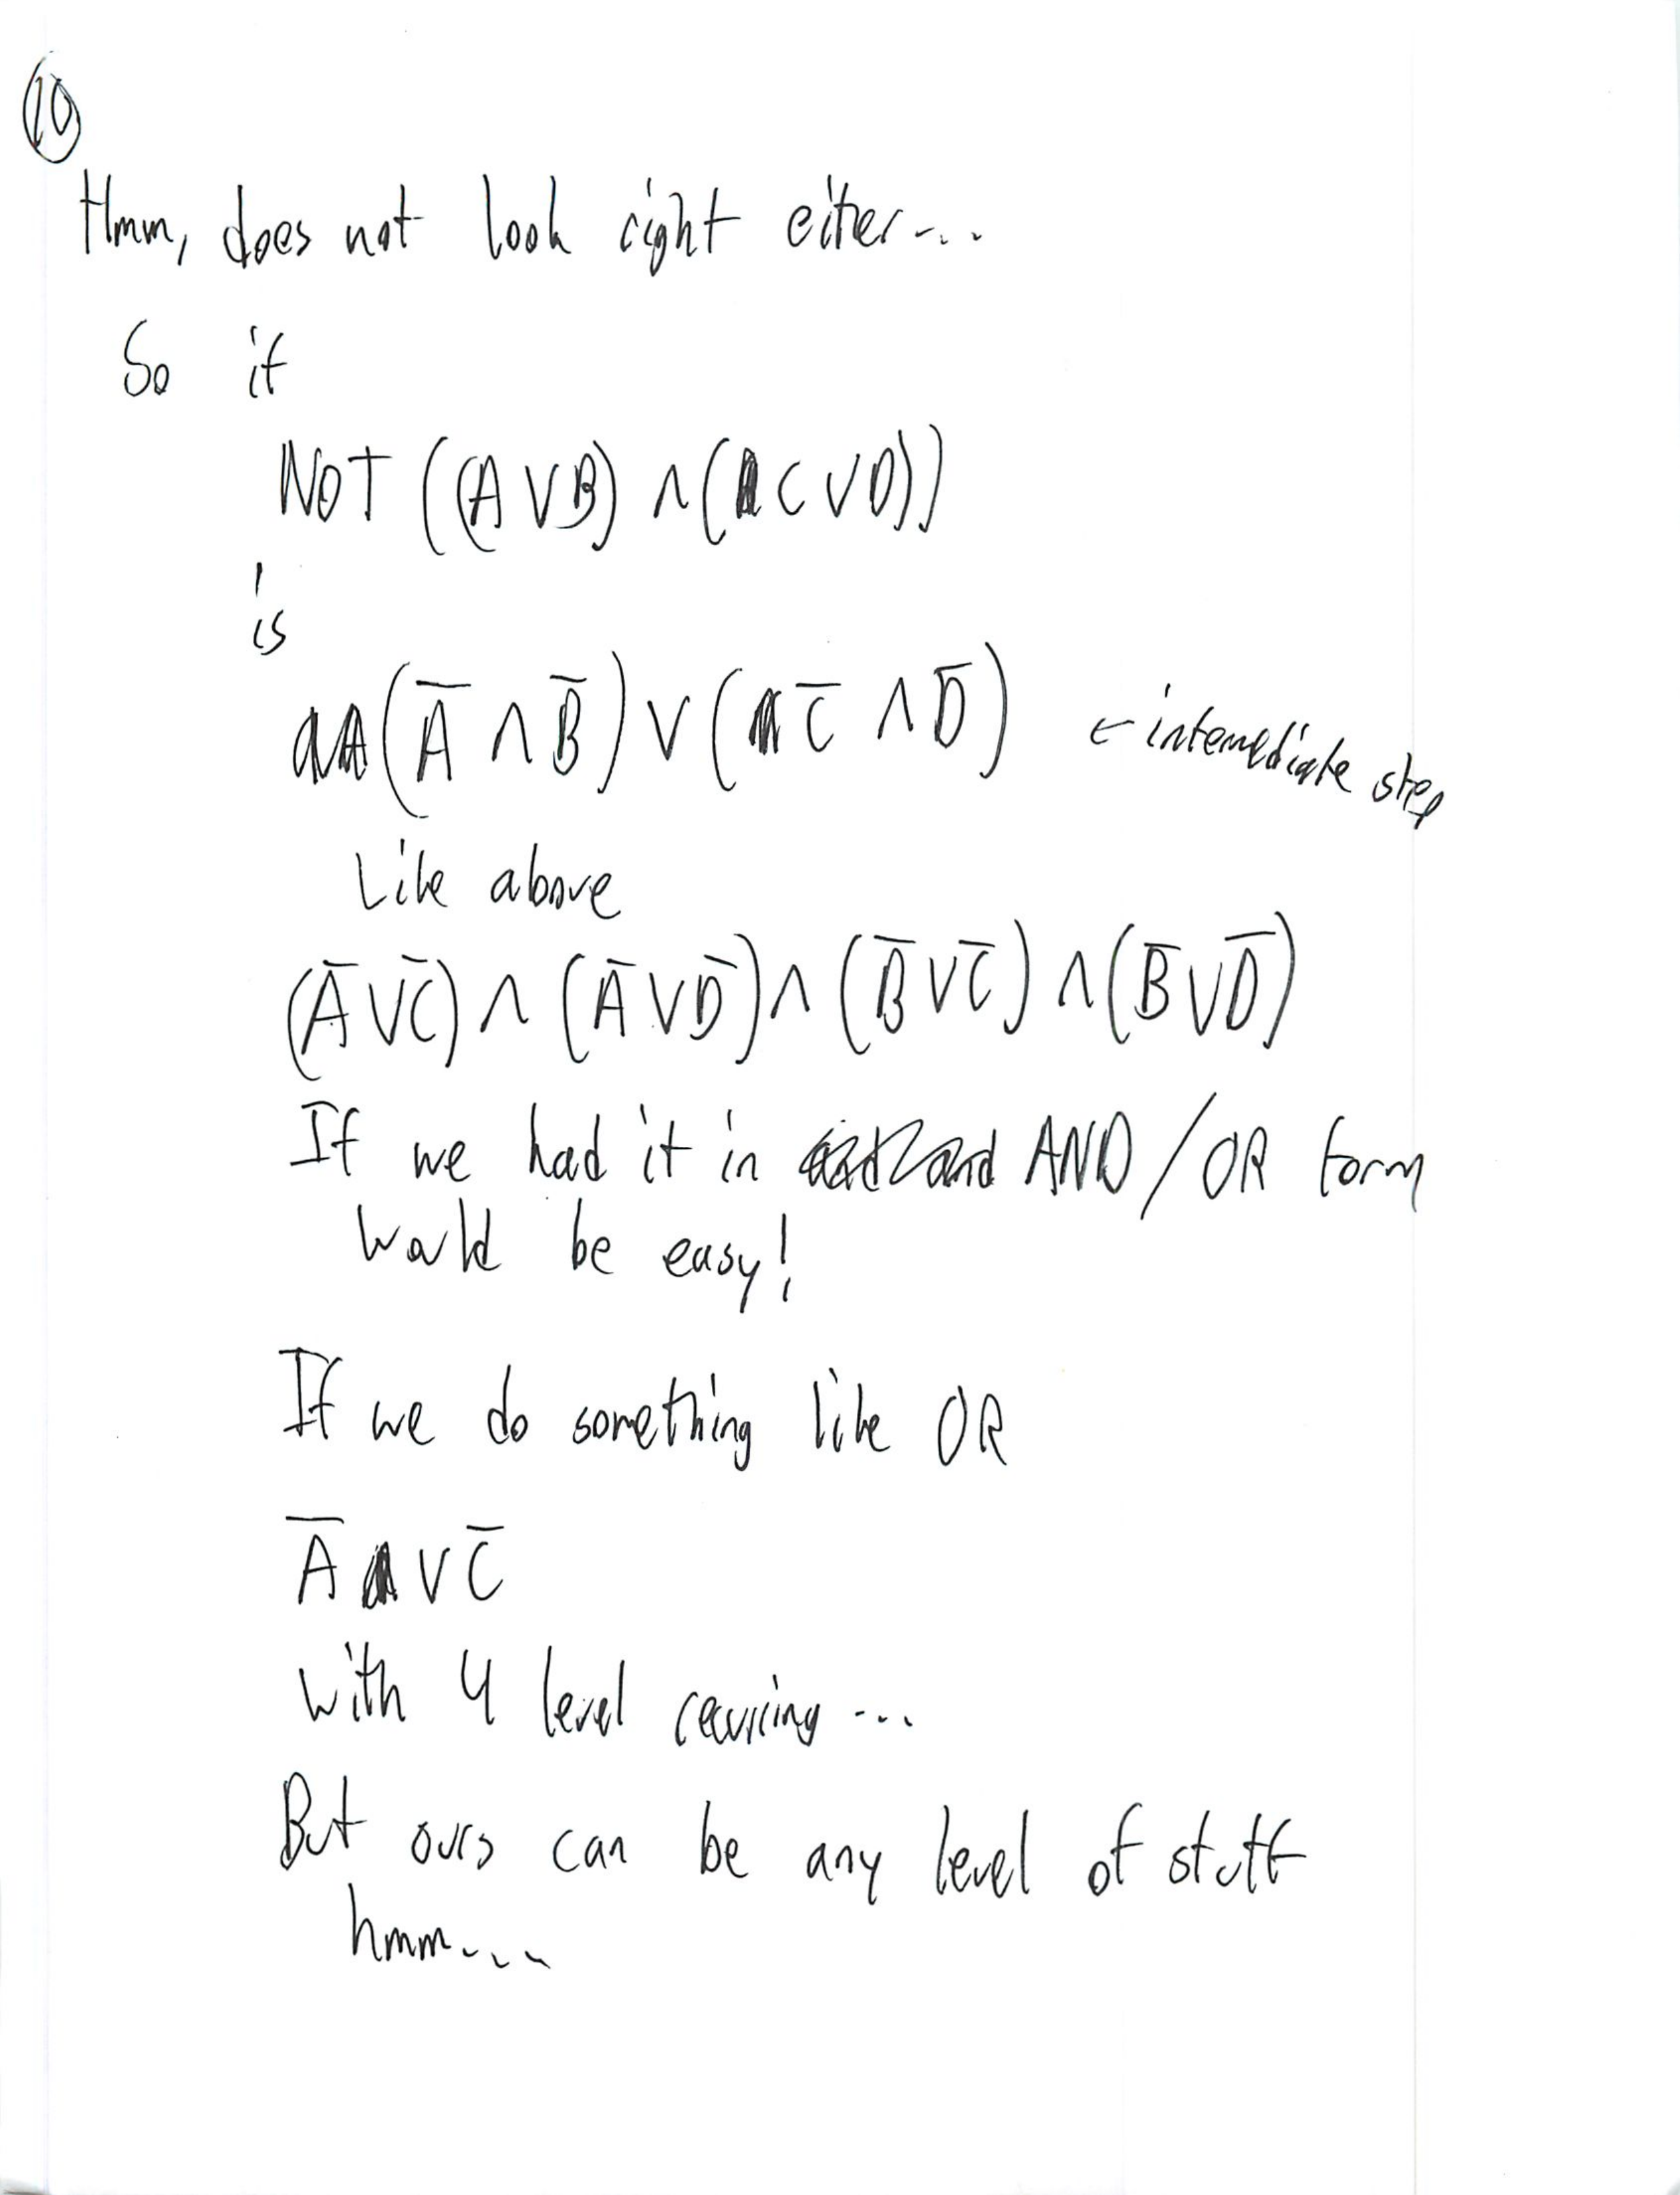 10
Hmm, does not look right eiter...
So if
NOT ((A ∨ B) ∧ (C ∨ D))
is
(A̅ ∧ B̅) ∨ (C̅ ∧ D̅) ← intemediate step
Like above
(A̅ ∨ C̅) ∧ (A̅ ∨ D̅) ∧ (B̅ ∨ C̅) ∧ (B̅ ∨ D̅)
If we had it in AND/OR form
would be easy!
If we do something like OR
A̅ ∨ C̅
with 4 level
But ours can be any level of stuff
hmm....